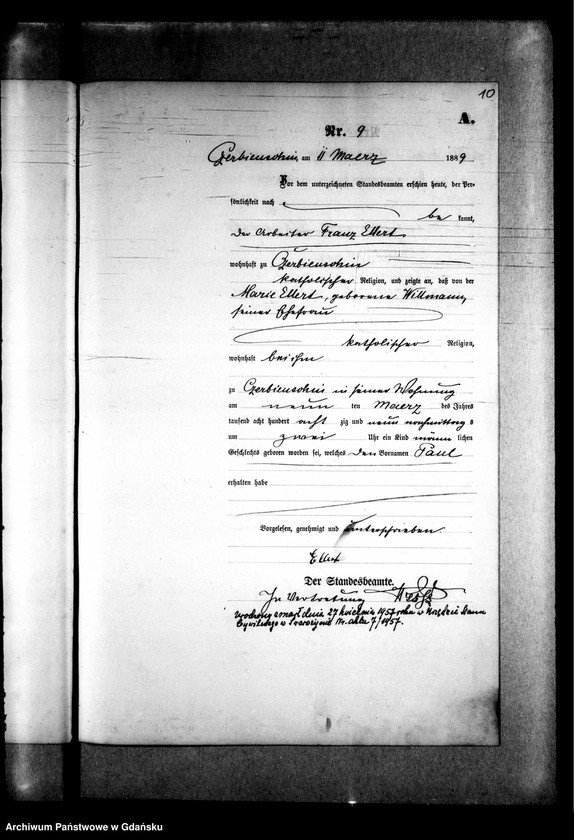 10
A.
Nr. 9
Czerbienschin, am 11 Maerz 1889
Vor dem unterzeichneten Standesbeamten erschien heute, der Per-
sönlichkeit nach
be kannt,
der Arbeiter Franz Ellert
wohnhaft zu Czerbienschin
katholischer Religion, und zeigte an, daß von der
Marie Ellert, geborene Willmann,
seiner Ehefrau
katholischer Religion,
wohnhaft bei ihm
zu Czerbienschin in seiner Wohnung
am neun ten Maerz des Jahres
tausend acht hundert acht zig und neun nachmittags
um zwei Uhr ein Kind männ lichen
Geschlechts geboren worden sei, welches den Vornamen Paul
erhalten habe
Vorgelesen, genehmigt und unterschrieben.
Ellert
Der Standesbeamte.
In Vertretung
zmarł dnia 27 kwietnia 1957 roku w Urzędzie Stanu
Cywilnego w Nr. aktu 7/1957.
Archiwum Państwowe w Gdańsku